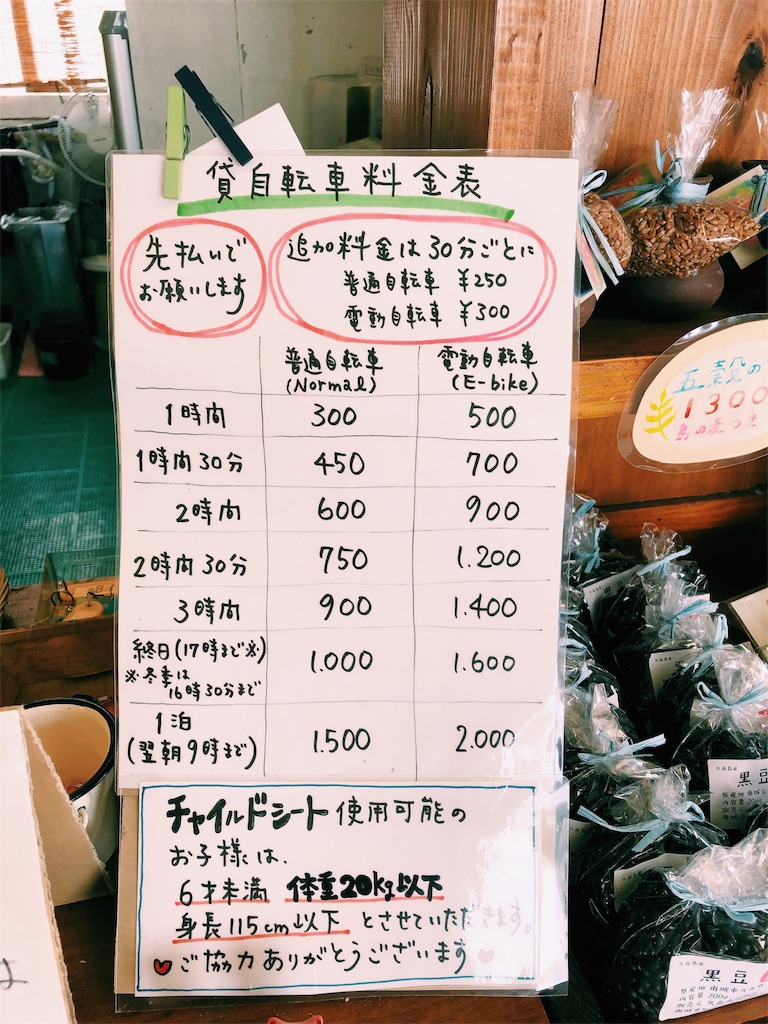 貸自転車料金表
先払いで
お願いします
追加料金は30分ごとに
普通自転車 ¥250
電動自転車 ¥300
普通自転車 電動自転車
(Normal) (E-bike)
1時間 300 500
1時間30分 450 700
2時間 600 900
2時間30分 750 1.200
3時間 900 1.400
終日(17時まで※) 1.000 1.600
※冬季は
16時30分まで
1泊 1.500 2.000
(翌朝9時まで)
チャイルドシート使用可能の
お子様は、
6才未満 体重20kg以下
身長115cm以下 とさせていただきます。
ご協力ありがとうございます
五穀の
1300
黒豆
久高島産
黒豆
原産地 南城市
内容量 200g